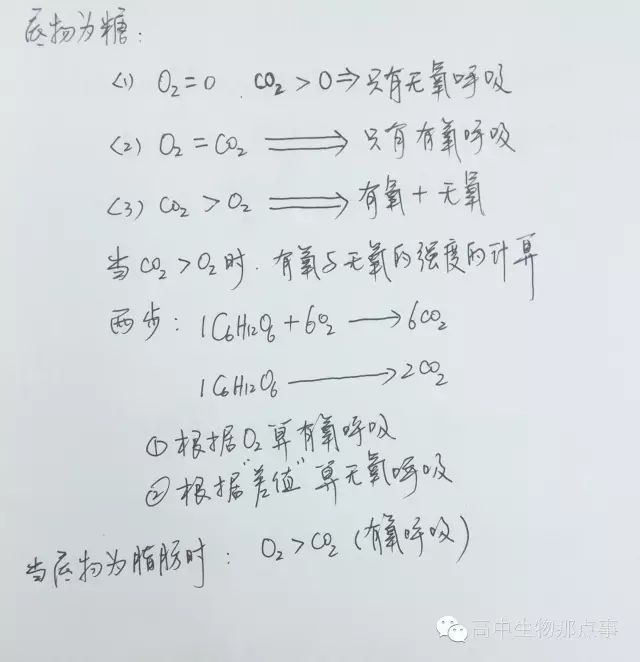 底物为糖:
<1) O₂=0 CO₂>0⇒只有无氧呼吸
<2) O₂=CO₂ ⟹ 只有有氧呼吸
<3) CO₂>O₂ ⟹ 有氧+无氧
当CO₂>O₂时.有氧与无氧的强度的计算
两步: 1C₆H₁₂O₆+6O₂ ⟶ 6CO₂
1C₆H₁₂O₆ ⟶ 2CO₂
①根据O₂算有氧呼吸
②根据"差值"算无氧呼吸
当底物为脂肪时: O₂>CO₂ (有氧呼吸)
高中生物那点事